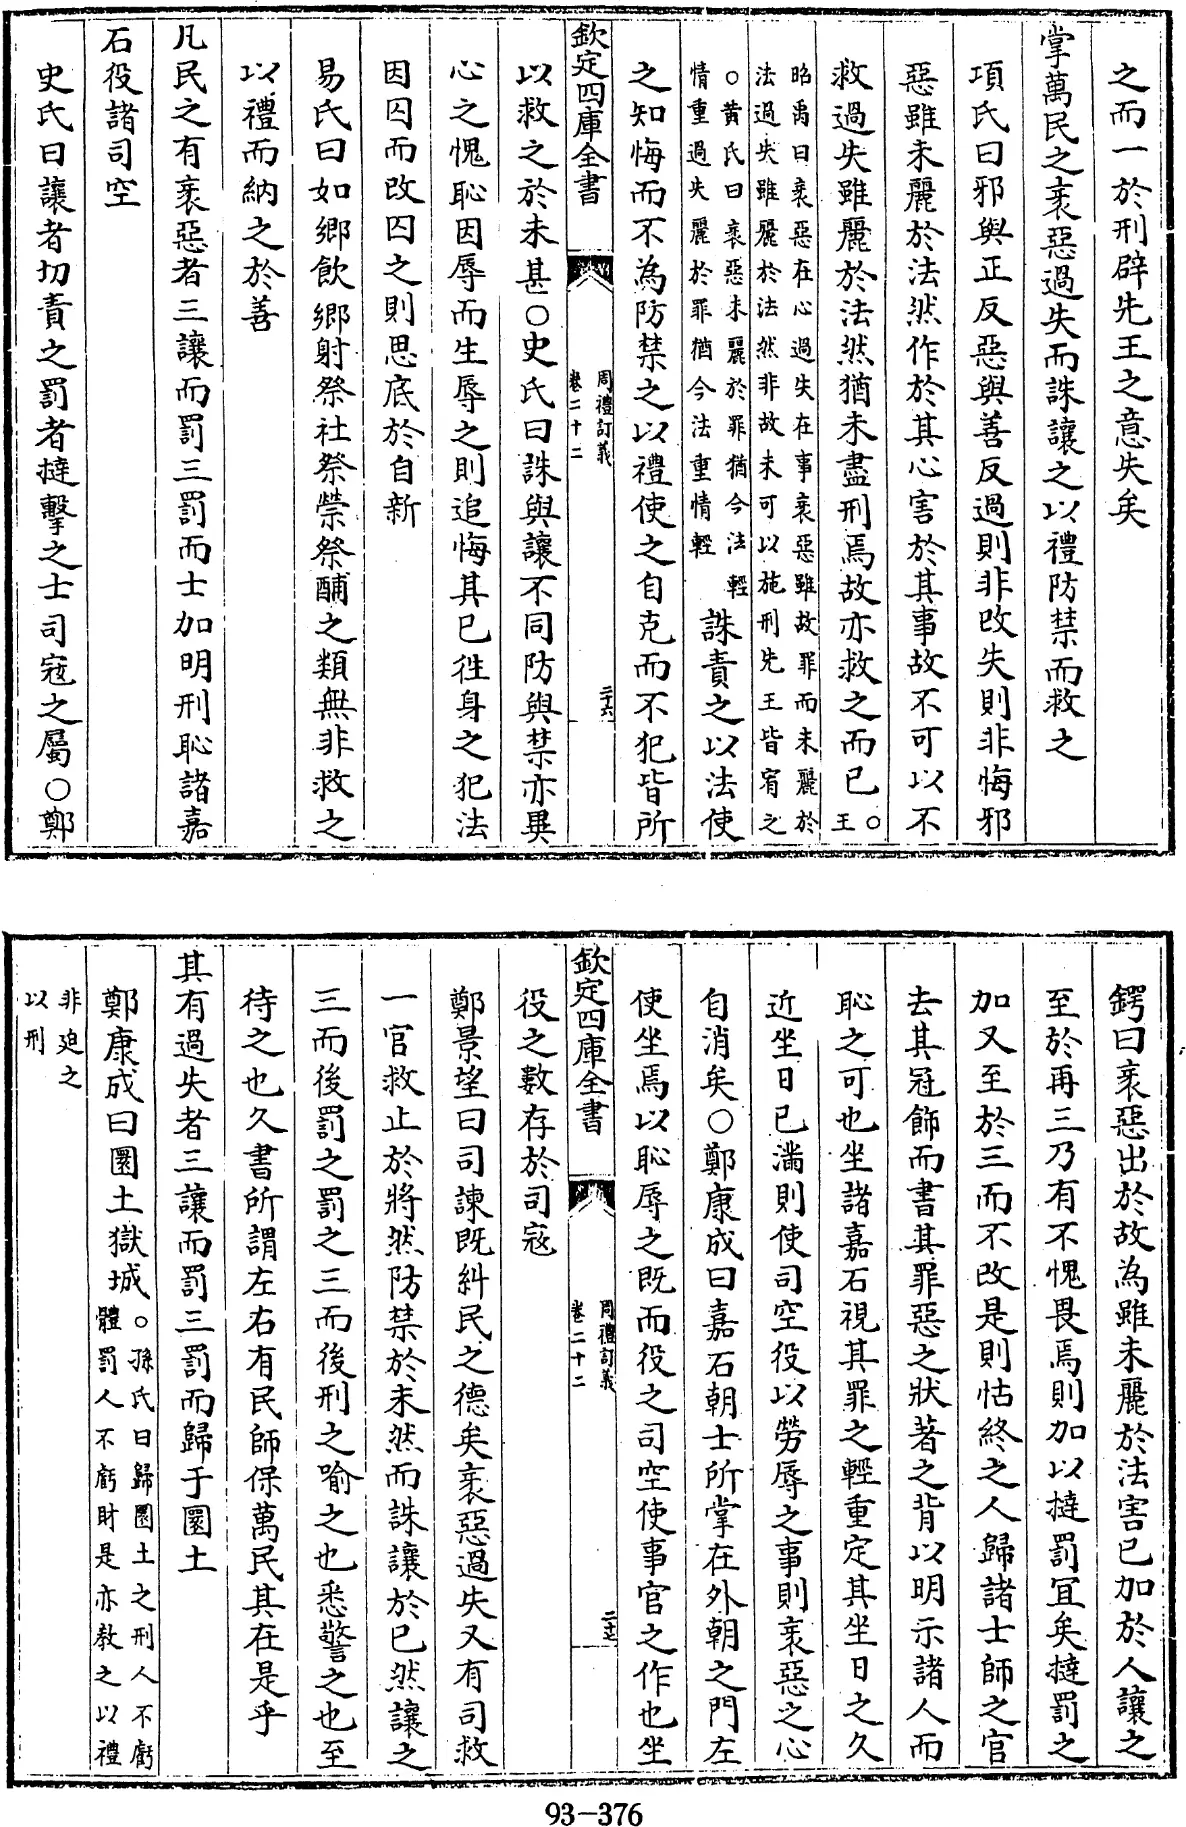 之而一於刑辟先王之意失矣
掌萬民之衺惡過失而誅讓之以禮防禁而救之
項氏曰邪與正反惡與善反過則非改失則非悔邪
惡雖未麗於法然作於其心害於其事故不可以不
救過失雖麗於法然猶未盡刑焉故亦救之而已○王
昭禹曰衺惡在心過失在事衺惡雖故罪而未麗於
法過失雖麗於法然非故未可以施刑先王皆宥之
○黄氏曰衺惡未麗於罪猶今法輕
情重過失麗於罪猶今法重情輕
誅責之以法使
之知悔而不為防禁之以禮使之自克而不犯皆所
欽定四庫全書
周禮訂義
卷二十二
二十六
以救之於未甚○史氏曰誅與讓不同防與禁亦異
心之愧恥因辱而生辱之則追悔其已徃身之犯法
因囚而改囚之則思底於自新
易氏曰如鄉飲鄉射祭社祭禜祭酺之類無非救之
以禮而納之於善
凡民之有衺惡者三讓而罰三罰而士加明刑恥諸嘉
石役諸司空
史氏曰讓者切責之罰者撻擊之士司寇之屬○鄭
鍔曰衺惡出於故為雖未麗於法害已加於人讓之
至於再三乃有不愧畏焉則加以撻罰宜矣撻罰之
加又至於三而不改是則怙終之人歸諸士師之官
去其冠飾而書其罪惡之狀著之背以明示諸人而
恥之可也坐諸嘉石視其罪之輕重定其坐日之久
近坐日已滿則使司空役以勞辱之事則衺惡之心
自消矣○鄭康成曰嘉石朝士所掌在外朝之門左
使坐焉以恥辱之既而役之司空使事官之作也坐
欽定四庫全書
周禮訂義
卷二十二
二十七
役之數存於司寇
鄭景望曰司諫既糾民之德矣衺惡過失又有司救
一官救止於將然防禁於未然而誅讓於已然讓之
三而後罰之罰之三而後刑之喻之也悉警之也至
待之也久書所謂左右有民師保萬民其在是乎
其有過失者三讓而罰三罰而歸于圜土
鄭康成曰圜土獄城
○孫氏曰歸圜土之刑人不虧
體罰人不虧財是亦教之以禮
非迫之
以刑
93-376